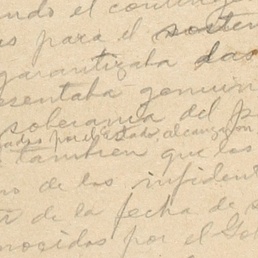 ndo el conting
as para el sosten
garantizaba las
esentaba genuin
soberania del p
gados por el estado, alcanzaron
e tambien que los
no de los infiden
r de la fecha de s
onocidas por el Gob